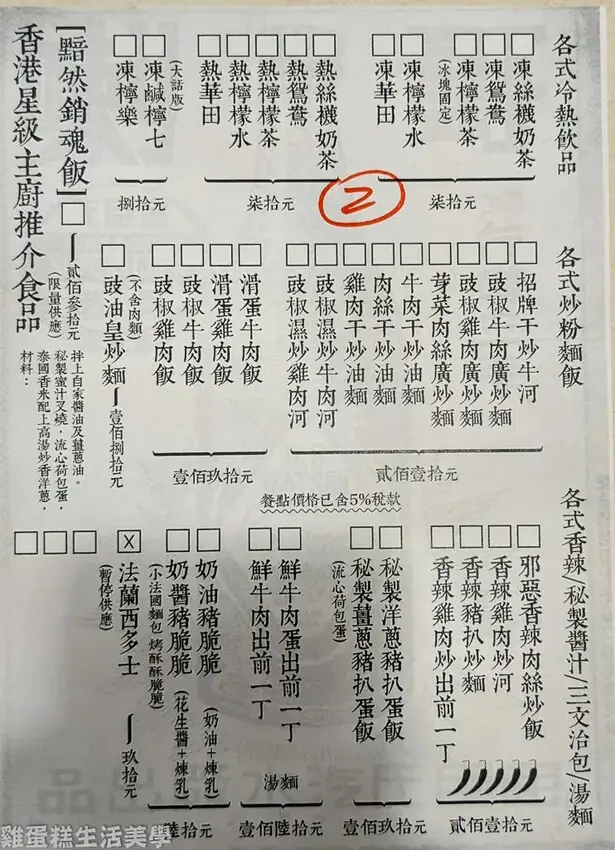 各式冷熱飲品
□凍絲襪奶茶
□凍鴛鴦
□凍檸檬茶
(冰塊固定)
□凍檸檬水
□凍華田
柒拾元
□熱絲襪奶茶
□熱鴛鴦
□熱檸檬茶
□熱檸檬水
□熱華田
柒拾元
2
□凍鹹檸七
□凍檸樂
(大話版)
捌拾元
各式炒粉麵飯
□招牌干炒牛河
□豉椒牛肉廣炒麵
□豉椒雞肉廣炒麵
□芽菜肉絲廣炒麵
□牛肉干炒油麵
□肉絲干炒油麵
□雞肉干炒油麵
□豉椒濕炒牛肉河
□豉椒濕炒雞肉河
貳佰壹拾元
□滑蛋牛肉飯
□滑蛋雞肉飯
□豉椒牛肉飯
□豉椒雞肉飯
壹佰玖拾元
□豉油皇炒麵
(不含肉類)
壹佰捌拾元
餐點價格已含5%稅款
各式香辣/秘製醬汁/三文治包/湯麵
□邪惡香辣肉絲炒飯
□香辣雞肉炒河
□香辣豬扒炒麵
□香辣雞肉炒出前一丁
貳佰壹拾元
□秘製洋蔥豬扒蛋飯
□秘製薑蔥豬扒蛋飯
(流心荷包蛋)
壹佰玖拾元
□鮮牛肉蛋出前一丁
□鮮牛肉出前一丁
湯麵
壹佰陸拾元
□奶油豬脆脆(奶油+煉乳)
□奶醬豬脆脆(花生醬+煉乳)
(小法國麵包 烤酥酥脆脆)
陸拾元
☒法蘭西多士
(暫停供應)
玖拾元
□
□
□
香港星級主廚推介食品
[黯然銷魂飯]□
貳佰參拾元
(限量供應)
材料:
泰國香米配上高湯炒香洋蔥,
秘製蜜汁叉燒,流心荷包蛋,
拌上自家醬油及薑蔥油。
雞蛋糕生活美學